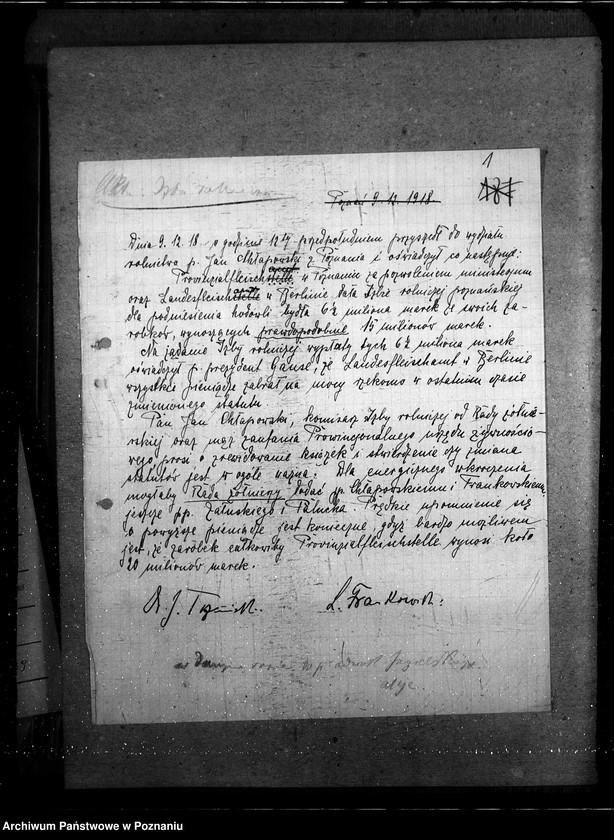 1
Akt. Izba rolnicza
Poznań 9. 12. 1918.
Dnia 9. 12. 18 o godzinie 12¼ przedpołudniem przyszedł do wydziału
rolnictwa p. Jan Chłapowski z Poznania i oświadczył co następuje:
Provinzialfleisch w Poznaniu za pozwoleniem ministeryum
oraz Landesfleisch w Berlinie dała Izbie rolniczej poznańskiej
dla podniesienia hodowli bydła 6½ miliona marek ze swoich za-
robków, wynoszących prawdopodobnie 15 milionów marek.
Na żądanie Izby rolniczej wypłaty tych 6½ miliona marek
oświadczył p. prezydent Ganse, że Landesfleischamt w Berlinie
wszystkie pieniądze zabrał na mocy rzekomo w ostatnim czasie
zmienionego statutu.
Pan Jan Chłapowski, komisarz Izby rolniczej od Rady żołnie-
rskiej oraz mąż zaufania Prowincyonalnego urzędu żywnościo-
wego prosi o zrewidowanie książek i stwierdzenie czy zmiana
statutów jest w ogóle ważna. Dla energicznego wkroczenia
mogłaby Rada żołnierzy dodać pp. Chłapowskiemu i Frankowskiemu
jeszcze pp. Załuskiego i Palucha. Prędkie upomnienie się
o powyższe pieniądze jest konieczne, gdyż bardzo możliwem
jest, że zarobek całkowity Provinzialfleischstelle wynosi koło
20 milionów marek.
L. Frankowski.
Archiwum Państwowe w Poznaniu